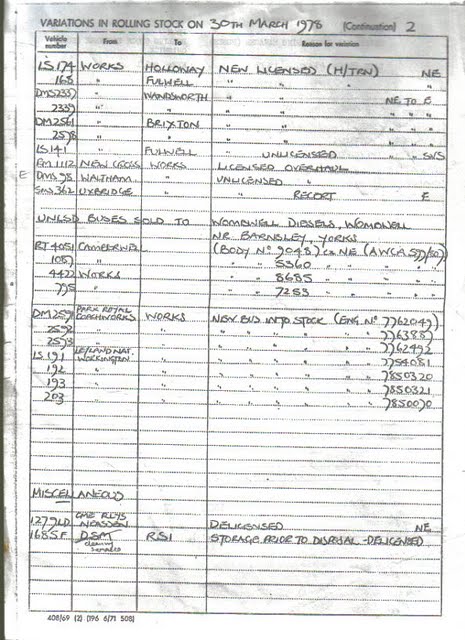 VARIATIONS IN ROLLING STOCK ON 30TH MARCH 1978 (Continuation) 2
Vehicle number From To Reason for variation
LS 174 WORKS HOLLOWAY NEW LICENSED (H/TRN) NE
168 " FULWELL " " "
DMS2337 " WANDSWORTH " " NE TO E
2339 " " " " " "
DM2561 " BRIXTON " " "
2578 " " " " "
LS 141 " FULWELL " UNLICENSED " SUS
BM 1112 NEW CROSS WORKS LICENSED OVERHAUL
E DMS 98 WALTHAM " UNLICENSED "
SMS 362 UXBRIDGE " " RECERT E
UNLSD BUSES SOLD TO WOMBWELL DIESELS, WOMBWELL
NR. BARNSLEY, YORKS
RT 4051 CAMBERWELL (BODY NO 9048) NE (AWCA
1087 " " 5360 " "
4422 WORKS " 8685 " "
795 " " 7283 " "
DM 2589 PARK ROYAL COACHWORKS WORKS NEW BUS INTO STOCK (ENG. NO 7762049)
2592 " " " " " " " " 7763887
2593 " " " " " " " " 7762492
LS 191 LEYLAND NAT. WORKINGTON " " " " " " " 7754081
192 " " " " " " " " 7850320
193 " " " " " " " " 7850321
203 " " " " " " " " 7850070
MISCELLANEOUS
1279LD NEASDEN DELICENSED NE
1685F DSM RSI STORAGE PRIOR TO DISPOSAL - DELICENSED
408/69 (2) (196 6/71 508)